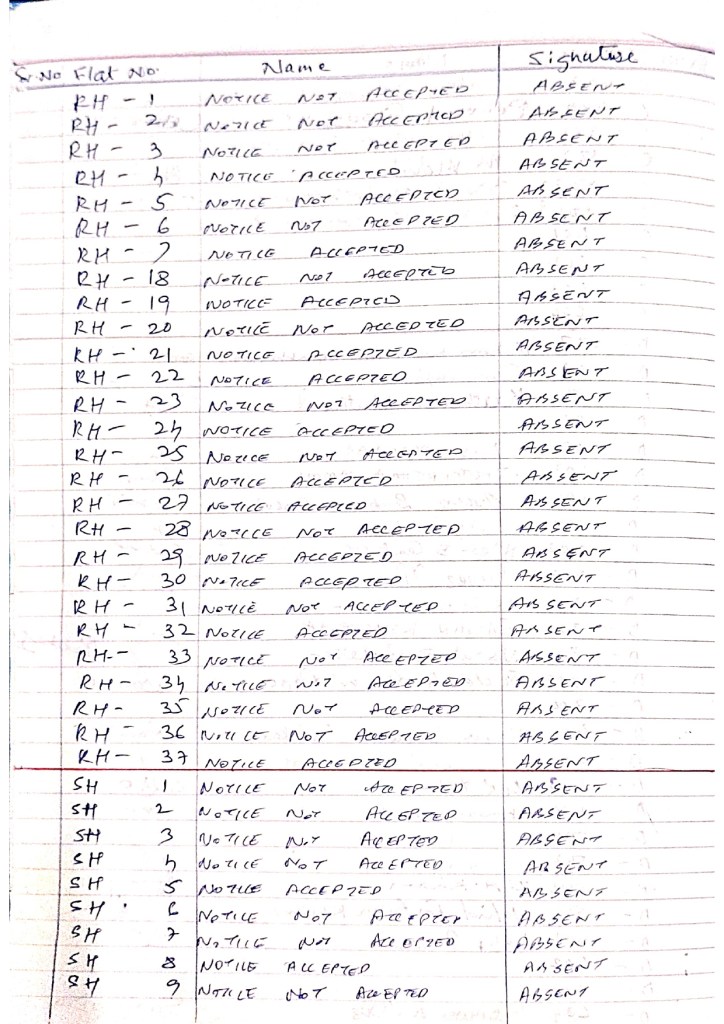 Sr. No Flat No. Name Signature
RH - 1 NOTICE NOT ACCEPTED ABSENT
RH - 2 NOTICE NOT ACCEPTED ABSENT
RH - 3 NOTICE NOT ACCEPTED ABSENT
RH - 4 NOTICE ACCEPTED ABSENT
RH - 5 NOTICE NOT ACCEPTED ABSENT
RH - 6 NOTICE NOT ACCEPTED ABSENT
RH - 7 NOTICE ACCEPTED ABSENT
RH - 18 NOTICE NOT ACCEPTED ABSENT
RH - 19 NOTICE ACCEPTED ABSENT
RH - 20 NOTICE NOT ACCEPTED ABSENT
RH - 21 NOTICE ACCEPTED ABSENT
RH - 22 NOTICE ACCEPTED ABSENT
RH - 23 NOTICE NOT ACCEPTED ABSENT
RH - 24 NOTICE ACCEPTED ABSENT
RH - 25 NOTICE NOT ACCEPTED ABSENT
RH - 26 NOTICE ACCEPTED ABSENT
RH - 27 NOTICE ACCEPTED ABSENT
RH - 28 NOTICE NOT ACCEPTED ABSENT
RH - 29 NOTICE ACCEPTED ABSENT
RH - 30 NOTICE ACCEPTED ABSENT
RH - 31 NOTICE NOT ACCEPTED ABSENT
RH - 32 NOTICE ACCEPTED ABSENT
RH - 33 NOTICE NOT ACCEPTED ABSENT
RH - 34 NOTICE NOT ACCEPTED ABSENT
RH - 35 NOTICE NOT ACCEPTED ABSENT
RH - 36 NOTICE NOT ACCEPTED ABSENT
RH - 37 NOTICE ACCEPTED ABSENT
SH 1 NOTICE NOT ACCEPTED ABSENT
SH 2 NOTICE NOT ACCEPTED ABSENT
SH 3 NOTICE NOT ACCEPTED ABSENT
SH 4 NOTICE NOT ACCEPTED ABSENT
SH 5 NOTICE ACCEPTED ABSENT
SH 6 NOTICE NOT ACCEPTED ABSENT
SH 7 NOTICE NOT ACCEPTED ABSENT
SH 8 NOTICE ACCEPTED ABSENT
SH 9 NOTICE NOT ACCEPTED ABSENT